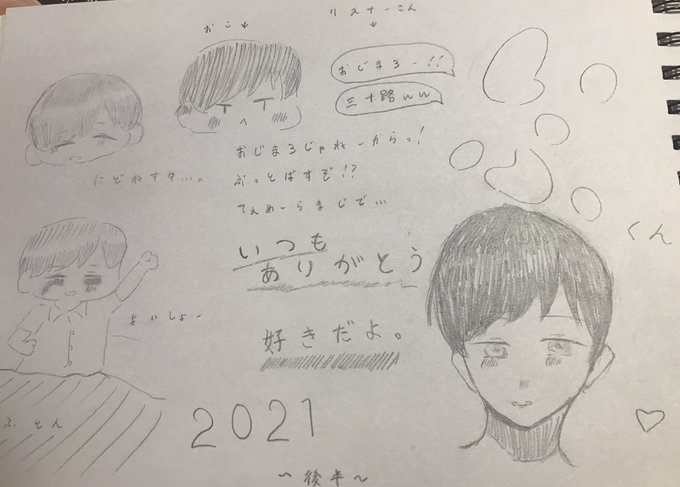 おこ↓
リスナーさん
↓
おじまろー!!
三十路ww
おじまろじゃねーからっ!
ぶっとばすぞ!?
てぇめーらまじで…
いつも
ありがとう
好きだよ。
くん
♡
よいしょー
ふとん
2021
〜後半〜